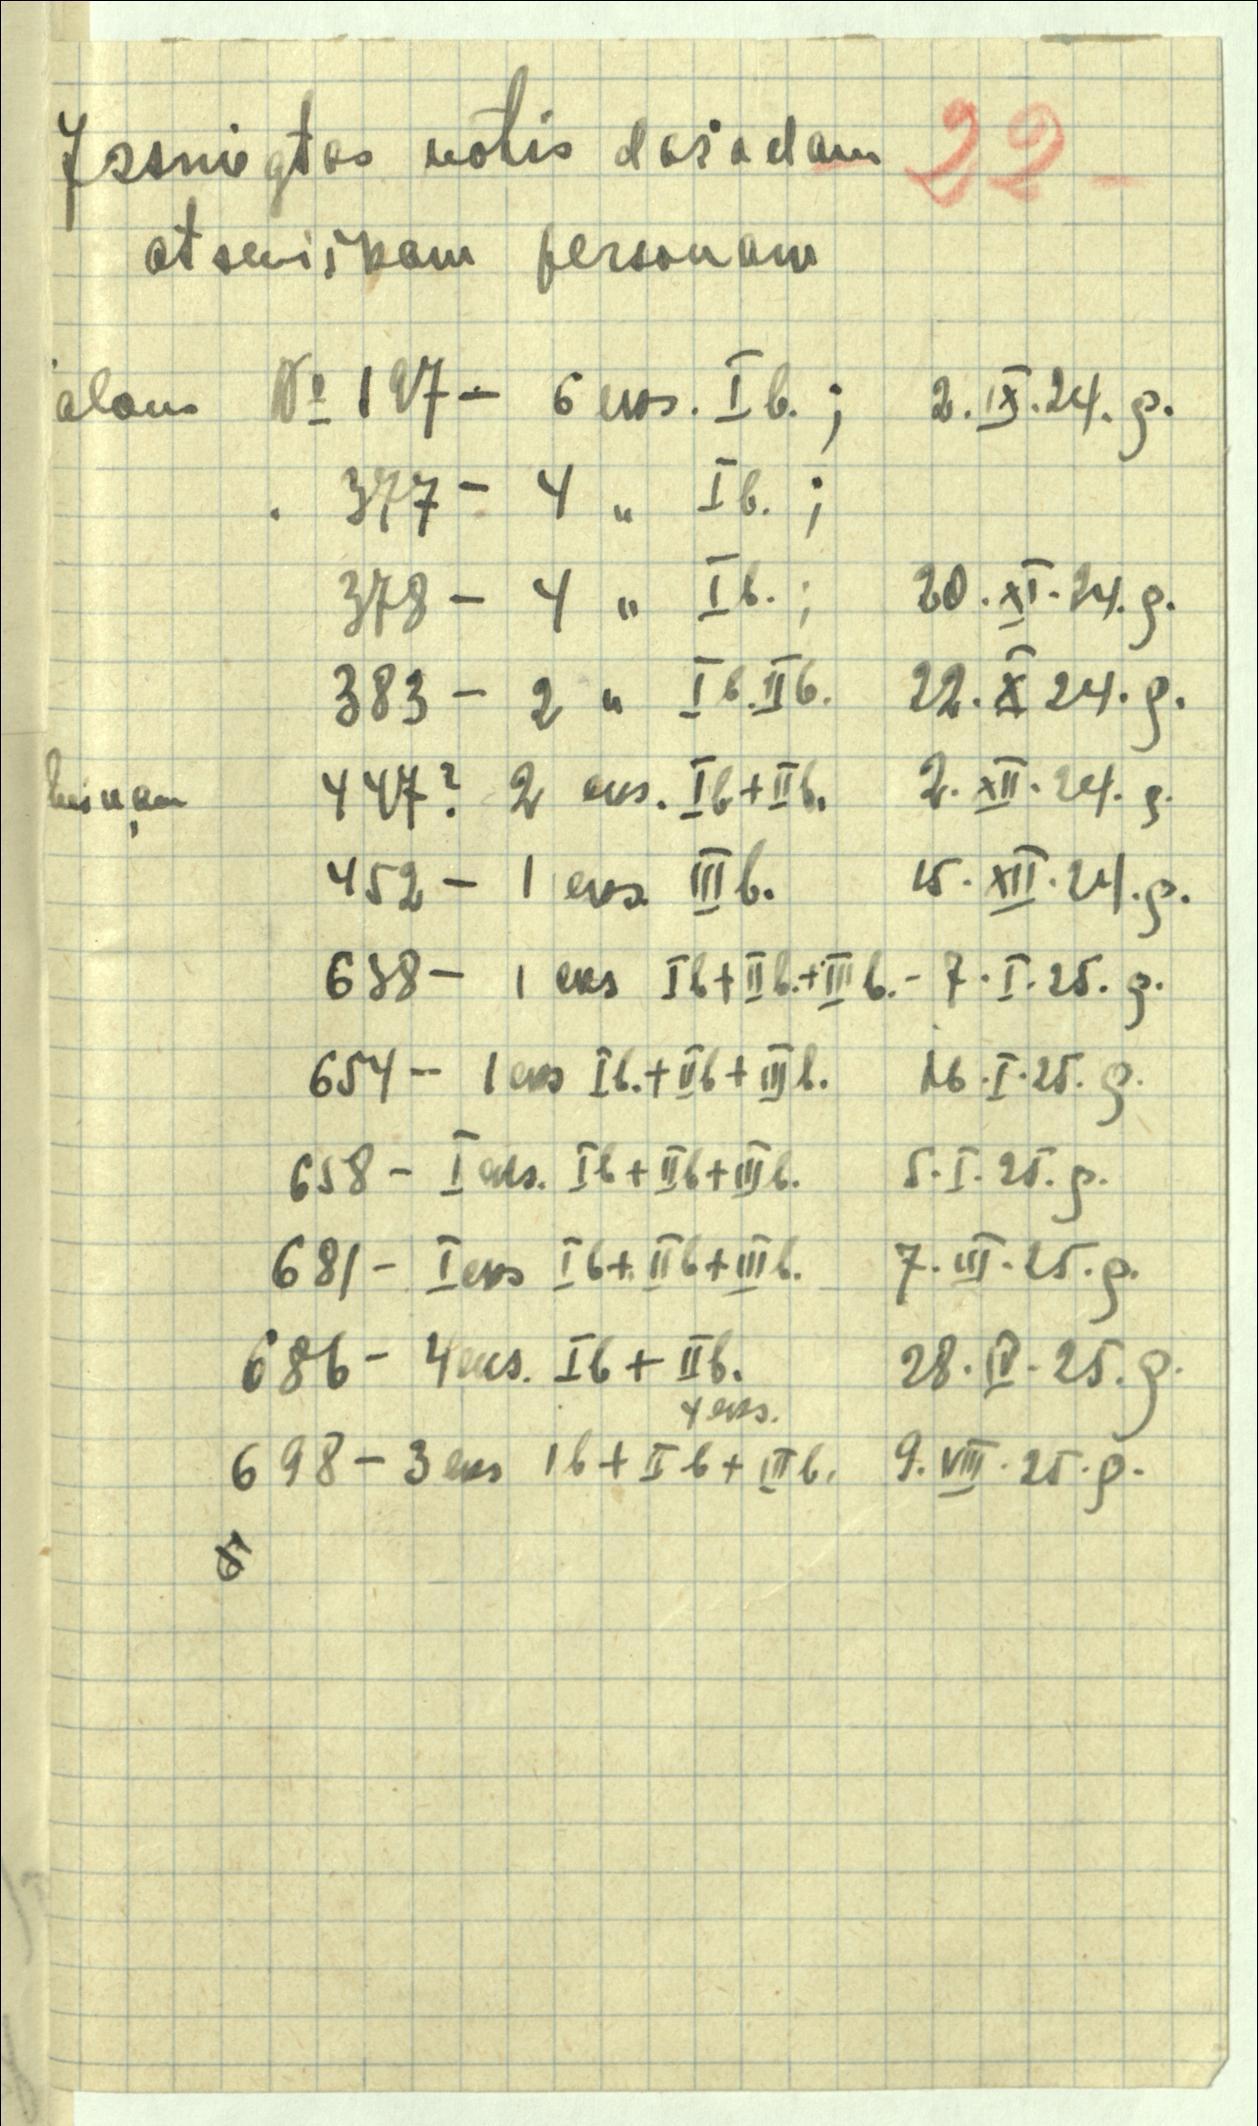 Izsniegtas notis dažadam 22
atsevišķam personam
alam № 197 - 6 eks. I b. ; 2.IX.24. g.
377 - 4 " I b. ;
378 - 4 " I b. ; 20.XI.24. g.
383 - 2 " I b. II b. 22.X 24. g.
447? 2 eks. I b + II b. 2.XII.24. g.
452 - 1 eks. III b. 15.XII.24. g.
638 - 1 eks I b + II b. + III b. - 7.I.25. g.
654 - 1 eks I b. + II b + III b. 16.I.25. g.
658 - I eks. I b + II b + III b. 5.I.25. g.
681 - I eks I b + II b + III b. 7.III.25. g.
686 - 4 eks. I b + II b. 28.IV.25. g.
4 eks.
698 - 3 eks I b + II b + III b. 9.VIII.25. g.